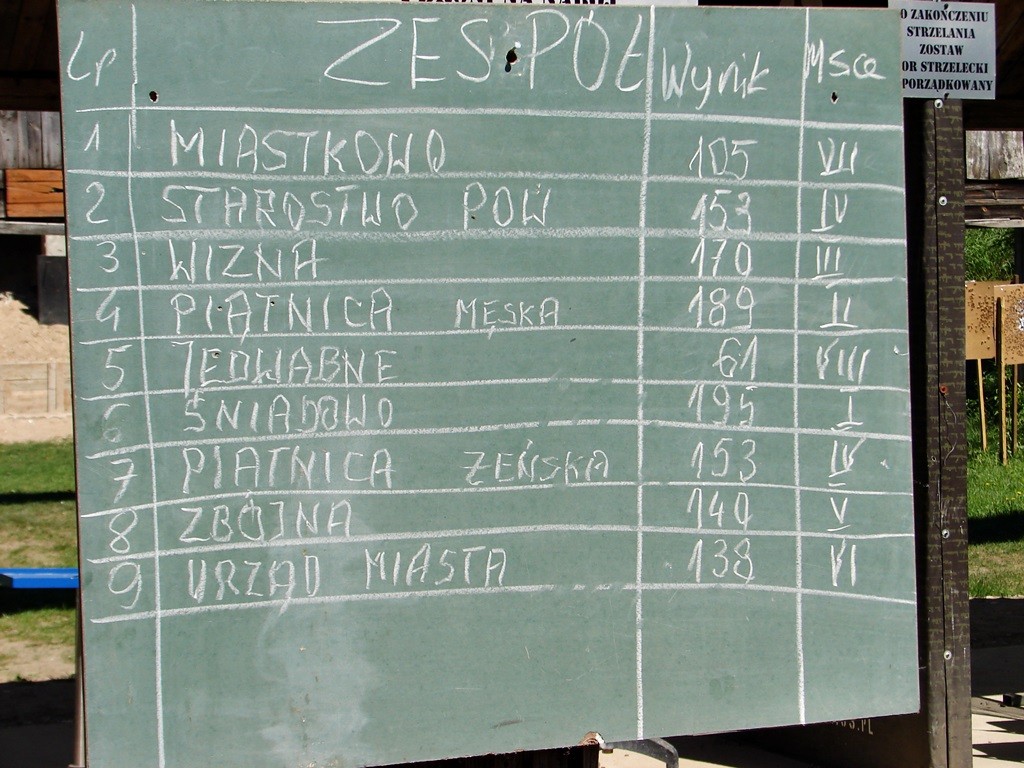 Lp ZESPÓŁ Wynik Msce
1 MIASTKOWO 105 VII
2 STAROSTWO POW 153 IV
3 WIZNA 170 III
4 PIĄTNICA MĘSKA 189 II
5 JEDWABNE 61 VIII
6 ŚNIADOWO 195 I
7 PIATNICA ŻEŃSKA 153 IV
8 ZBÓJNA 140 V
9 URZĄD MIASTA 138 VI
O ZAKOŃCZENIU
STRZELANIA
ZOSTAW
OR STRZELECKI
PORZĄDKOWANY